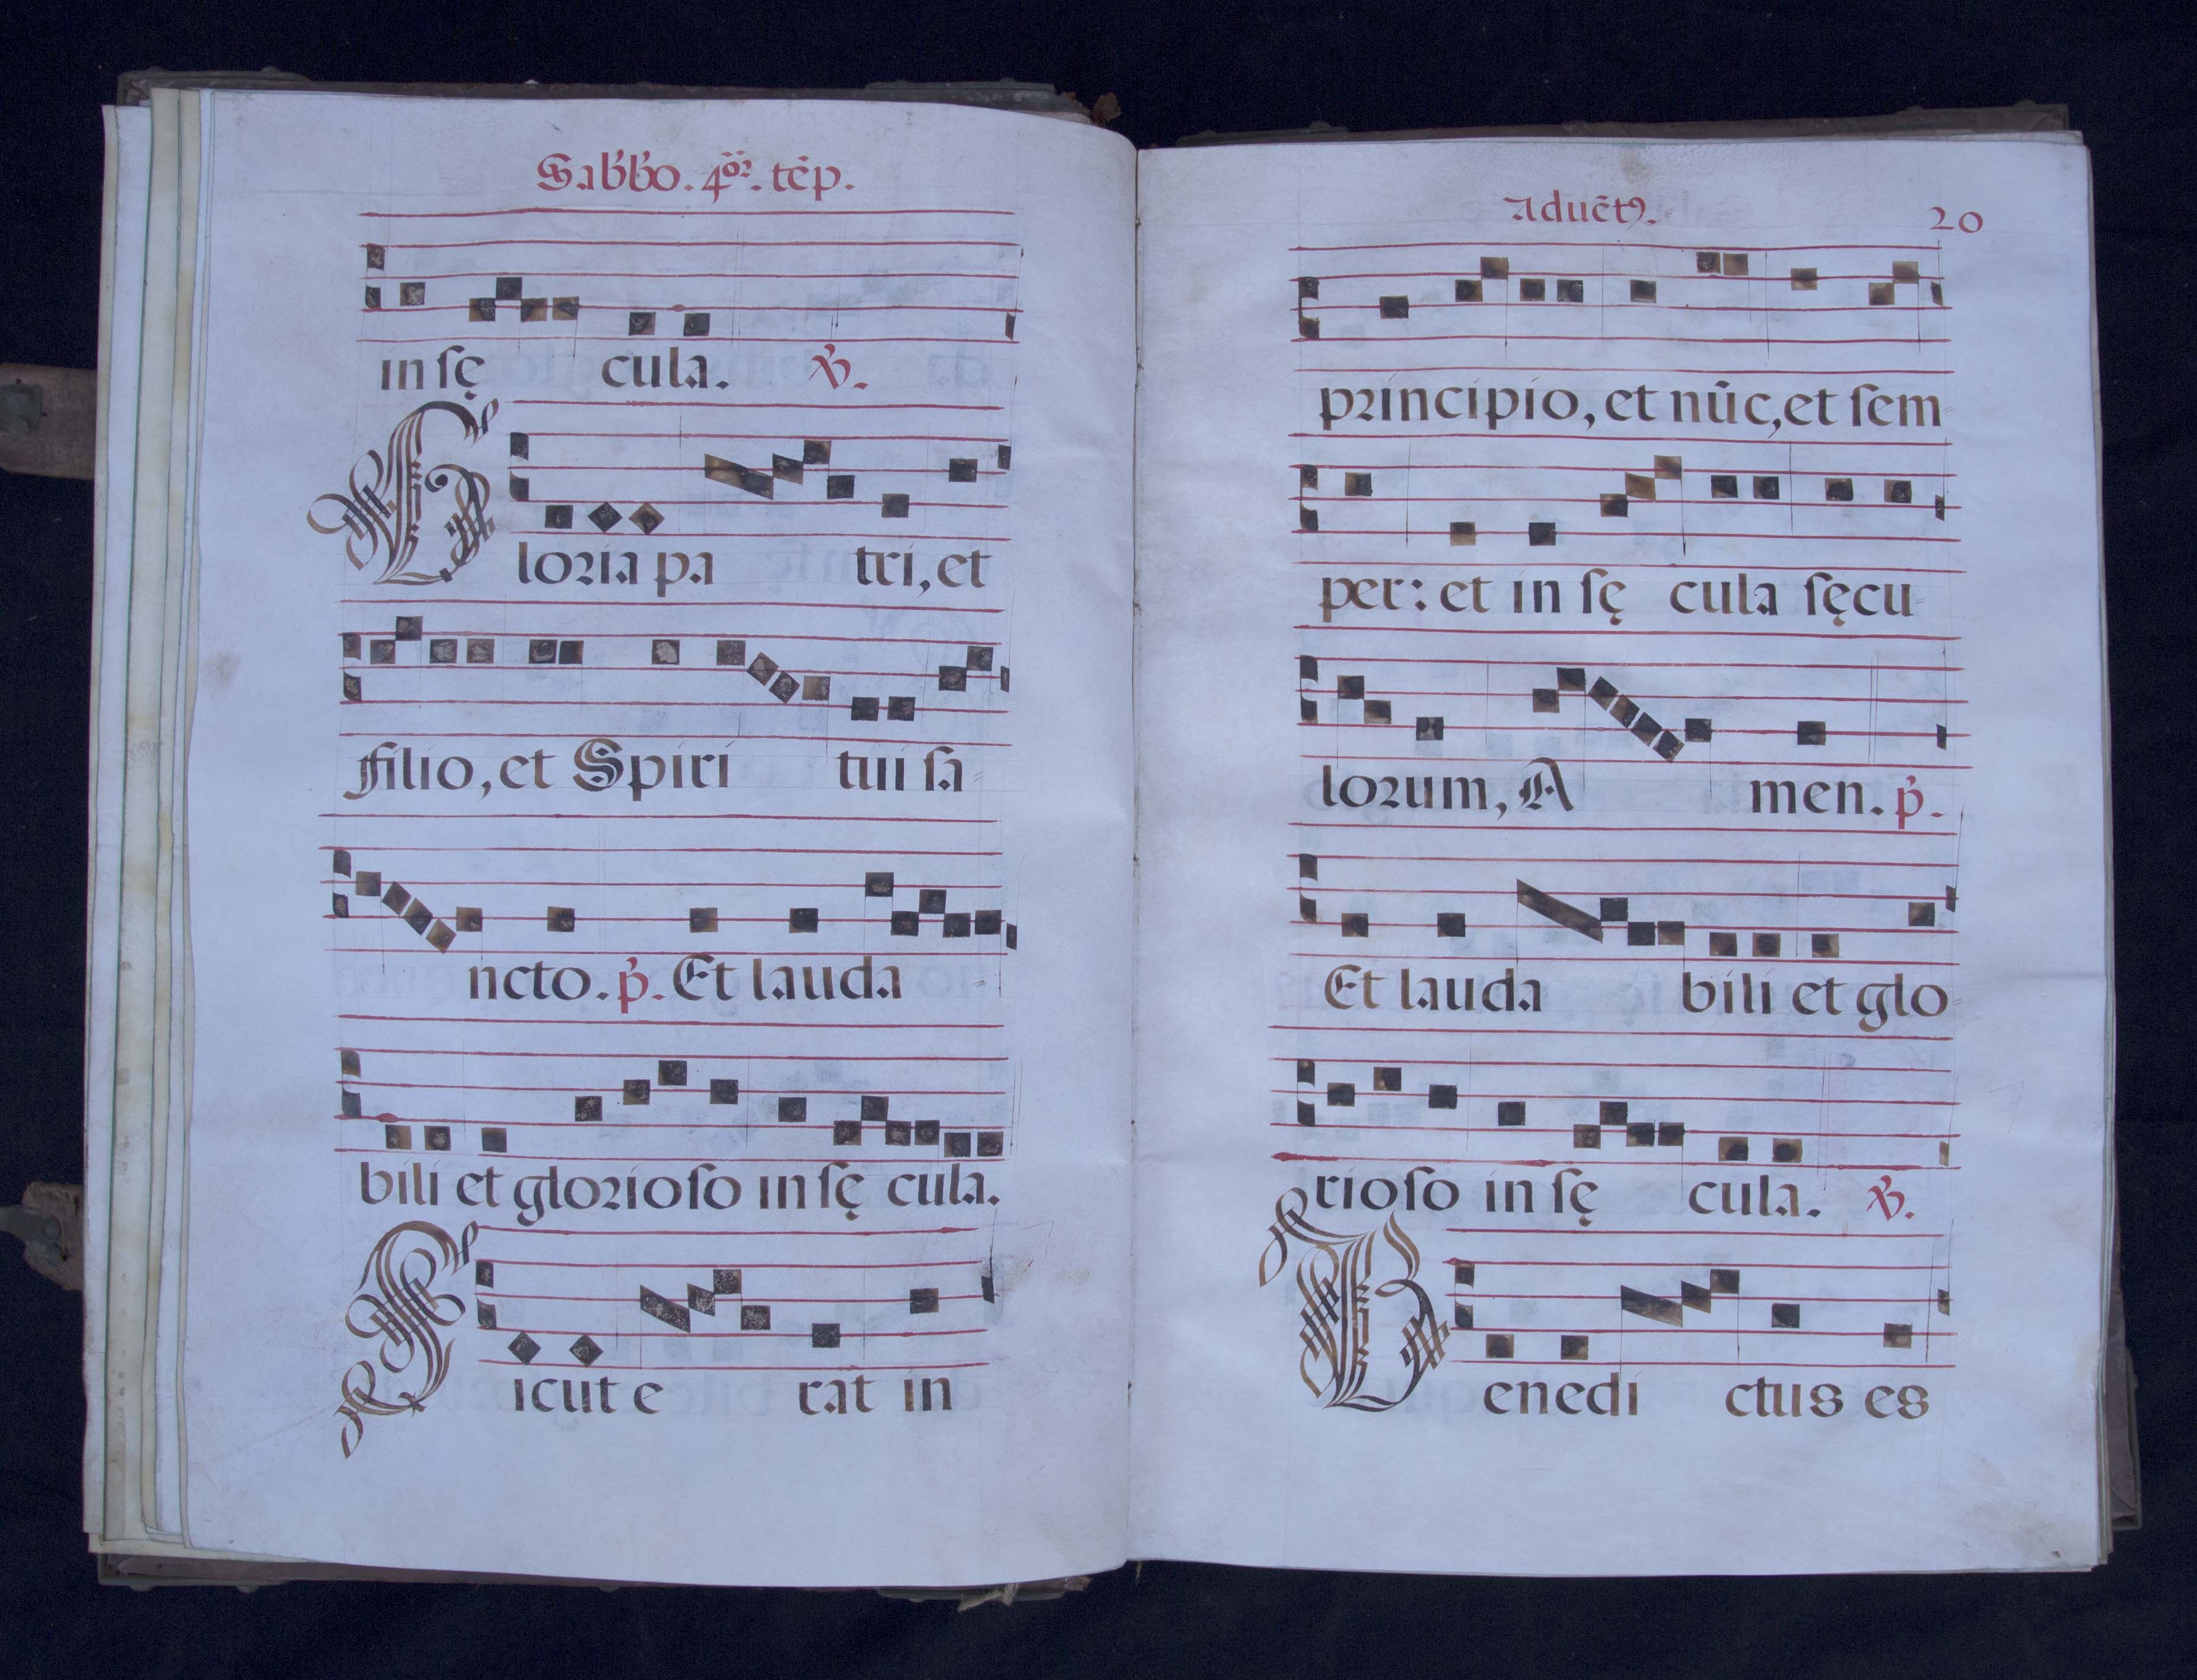 Sabbo. 4or. tēp.
in sę cula. ℣.
Gloria pa tri, et
filio, et Spiri tui sa=
ncto. p̄. Et lauda =
bili et glorioso in sę cula.
Sicut e rat in
Aduēt9. 20
principio, et nūc, et sem=
per: et in sę cula sęcu=
lorum, A men. p̄.
Et lauda bili et glo=
rioso in sę cula. ℣.
Benedi ctus es